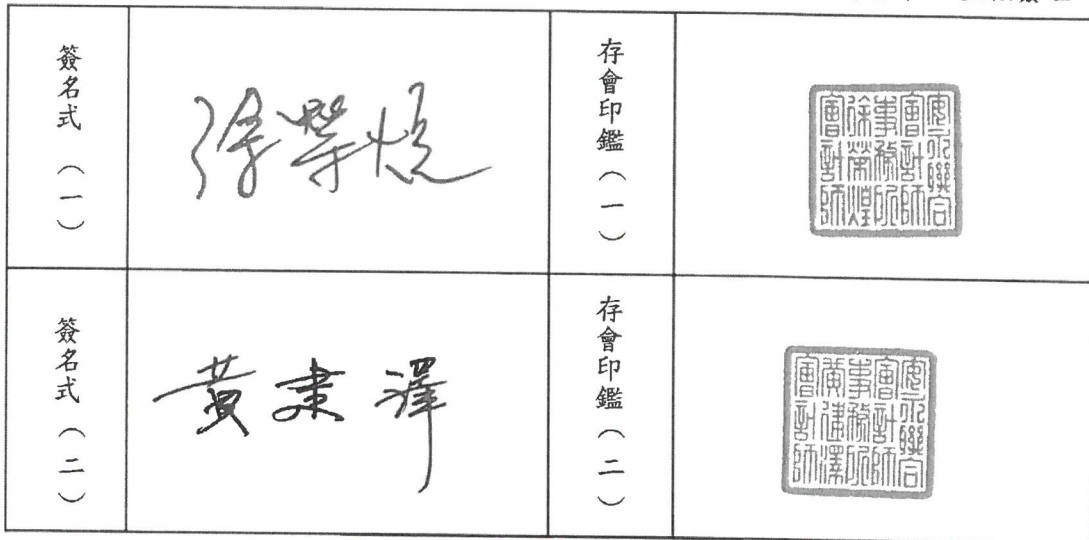 簽名式（一）
徐榮煌
存會印鑑（一）
安永聯合
會計師
事務所
徐榮煌
會計師
簽名式（二）
黃建澤
存會印鑑（二）
安永聯合
會計師
事務所
黃建澤
會計師